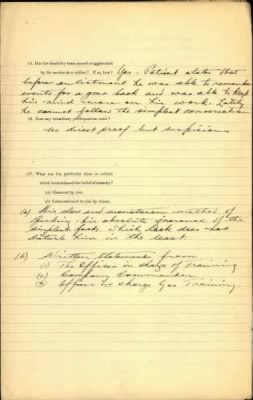 15. Has the disability been caused or aggravated
by his service as a soldier? If so, how? Yes - Patient states that
before enlistment he was able to remember
events for a year back and was able to keep
his mind more on his work. Lately
he cannot follow the simplest conversation
16. Does any hereditary predisposition exist?
no direct proof but suspicious
17. What are the particular signs or actions
which have induced the belief of insanity?
(a) Observed by you.
(b) Communicated to you by others.
(a) His slow and method of
thinking - his absolute ignorance of the
simplest facts which lack does not
disturb him in the least.
(b) Written statements from
(1) The Officer in charge of Training
(2) Company Commander
(3) Officer in charge Gas Training.